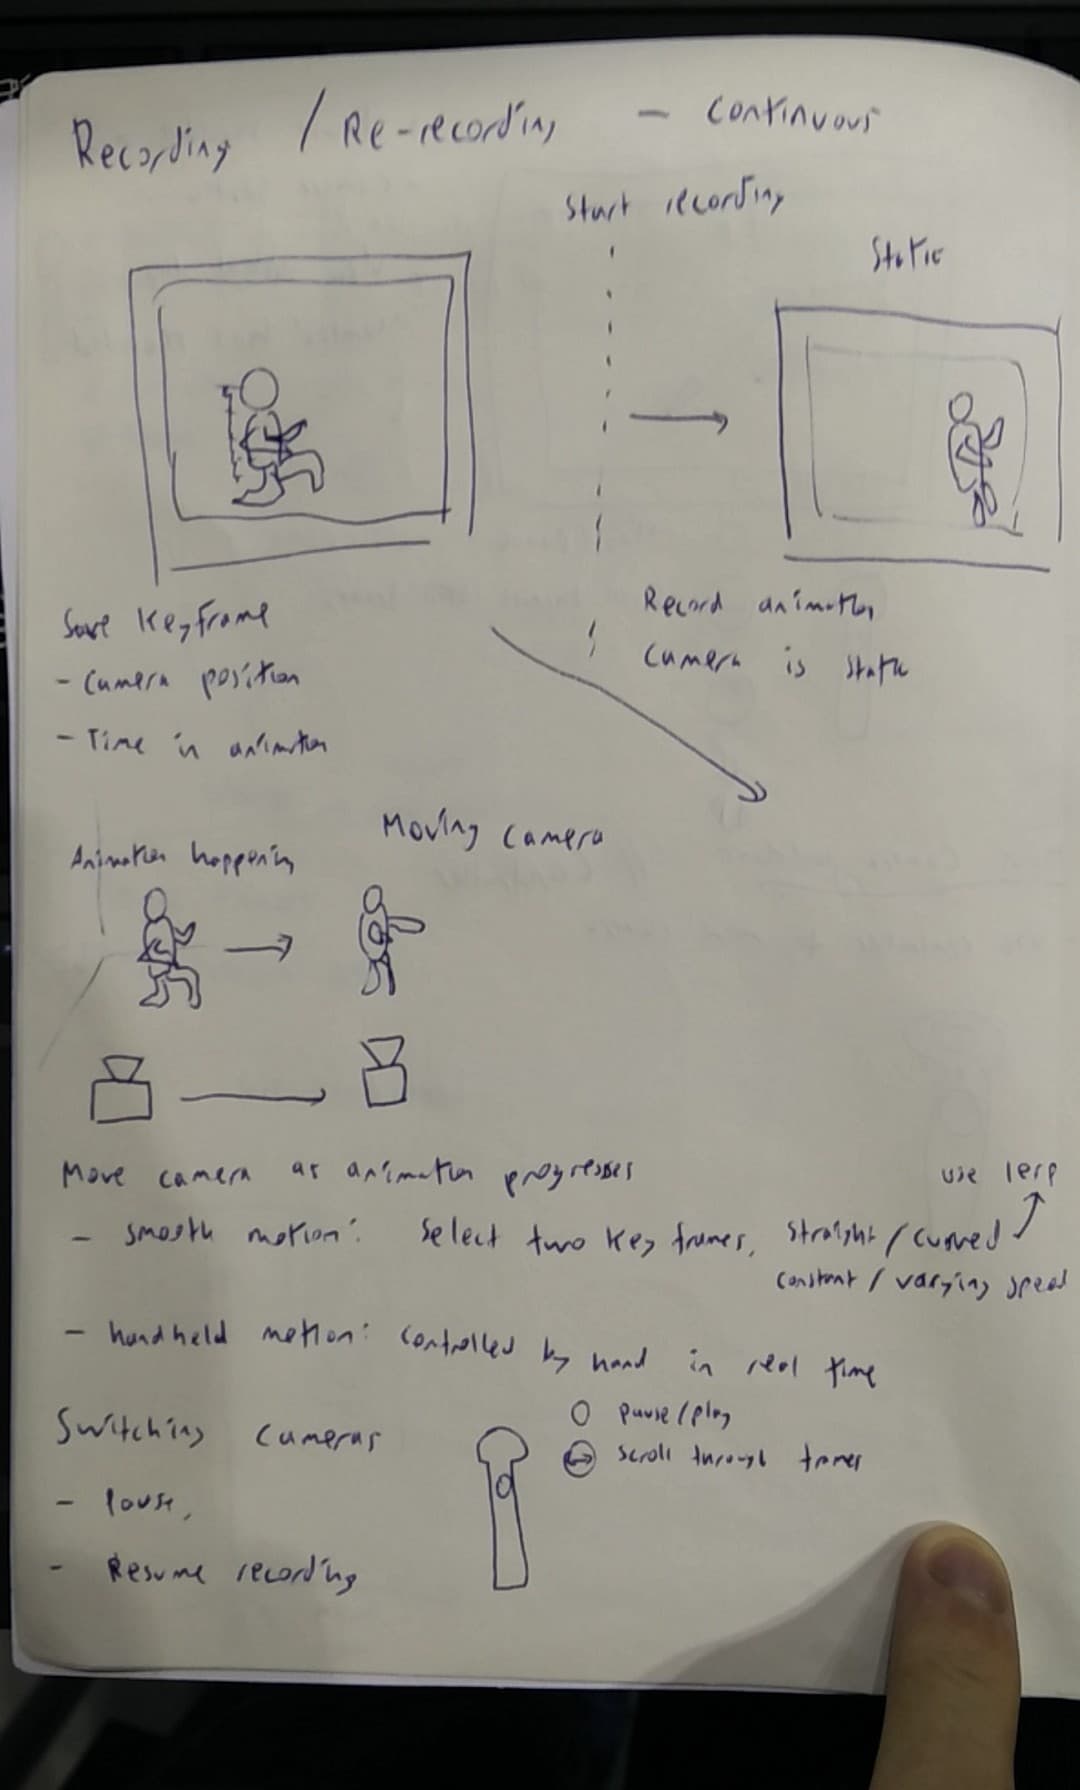 Recording / Re-recording - continuous
Start recording
Static
Save Keyframe
- Camera position
- Time in animation
Record animation
Camera is static
Moving camera
Animation happening
Move camera as animation progresses
- smooth motion: Select two key frames, straight / curved
use lerp
constant / varying speed
- handheld motion: controlled by hand in real time
Switching cameras
- Pause,
- Resume recording
pause/play
scroll through frames